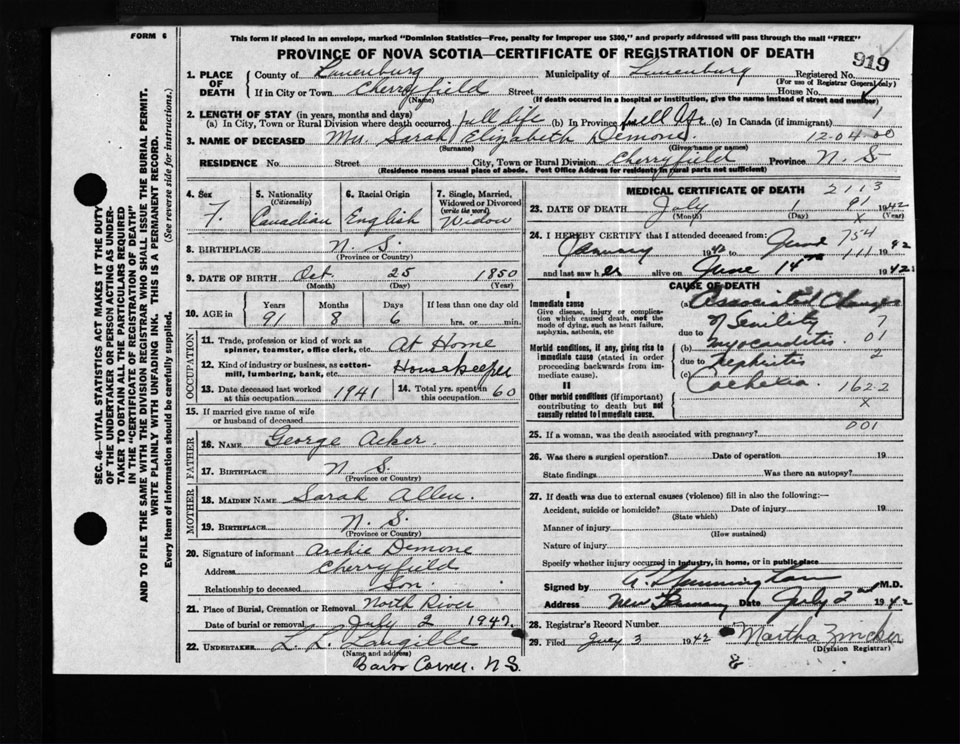 FORM 6
This form if placed in an envelope, marked "Dominion Statistics—Free, penalty for improper use $300," and properly addressed will pass through the mail "FREE"
PROVINCE OF NOVA SCOTIA—CERTIFICATE OF REGISTRATION OF DEATH
919
1. PLACE OF DEATH
County of Lunenburg Municipality of Lunenburg Registered No.
(For use of Registrar General only)
If in City or Town Cherryfield Street House No.
(Name) (If death occurred in a hospital or institution, give the name instead of street and number)
2. LENGTH OF STAY (in years, months and days)
(a) In City, Town or Rural Division where death occurred full life (b) In Province full life (c) In Canada (if immigrant)
3. NAME OF DECEASED Mrs. Sarah Elizabeth Demone 12-04-00
(Surname) (Given name or names)
RESIDENCE No. Street City, Town or Rural Division Cherryfield Province N. S.
(Residence means usual place of abode. Post Office Address for residents in rural parts not sufficient)
4. Sex F.
5. Nationality (Citizenship) Canadian
6. Racial Origin English
7. Single, Married, Widowed or Divorced (write the word) Widow
8. BIRTHPLACE N. S.
(Province or Country)
9. DATE OF BIRTH Oct. 25 1850
(Month) (Day) (Year)
10. AGE in Years Months Days If less than one day old
91 8 6 hrs. or min.
OCCUPATION
11. Trade, profession or kind of work as spinner, teamster, office clerk, etc. At Home
12. Kind of industry or business, as cotton-mill, lumbering, bank, etc. Housekeeper
13. Date deceased last worked at this occupation 1941
14. Total yrs. spent in this occupation 60
15. If married give name of wife or husband of deceased
FATHER
16. NAME George Acker
17. BIRTHPLACE N. S.
(Province or Country)
MOTHER
18. MAIDEN NAME Sarah Allen
19. BIRTHPLACE N. S.
(Province or Country)
20. Signature of informant Archie Demone
Address Cherryfield
Relationship to deceased Son
21. Place of Burial, Cremation or Removal North River
Date of burial or removal July 2 1942
22. UNDERTAKER L. L. Langille
(Name and address)
Barss Corner, N.S.
MEDICAL CERTIFICATE OF DEATH 2113
23. DATE OF DEATH July 1 91 1942
(Month) (Day) X (Year)
24. I HEREBY CERTIFY that I attended deceased from:
January 1942 to June 754 111 1942
and last saw her alive on June 14th 1942
CAUSE OF DEATH
I
Immediate cause
Give disease, injury or complication which caused death, not the mode of dying, such as heart failure, asphyxia, asthenia, etc
(a) Associated Changes
due to of Senility 7
Morbid conditions, if any, giving rise to immediate cause (stated in order proceeding backwards from immediate cause).
(b) Myocarditis 01
due to Nephritis 2
(c) Cachexia 162-2
II
Other morbid conditions (if important) contributing to death but not causally related to immediate cause.
X
001
25. If a woman, was the death associated with pregnancy?
26. Was there a surgical operation? Date of operation 19
State findings Was there an autopsy?
27. If death was due to external causes (violence) fill in also the following:—
Accident, suicide or homicide? Date of injury 19
(State which)
Manner of injury
(How sustained)
Nature of injury
Specify whether injury occurred in industry, in home, or in public place
Signed by M.D.
Address New Germany Date July 2nd 1942
28. Registrar's Record Number
29. Filed July 3 1942 Martha Zincker
(Division Registrar)
8
SEC. 46—VITAL STATISTICS ACT MAKES IT THE DUTY
OF THE UNDERTAKER OR PERSON ACTING AS UNDER-
TAKER TO OBTAIN ALL THE PARTICULARS REQUIRED
IN THE "CERTIFICATE OF REGISTRATION OF DEATH"
AND TO FILE THE SAME WITH THE DIVISION REGISTRAR WHO SHALL ISSUE THE BURIAL PERMIT.
WRITE PLAINLY WITH UNFADING INK. THIS IS A PERMANENT RECORD.
Every item of information should be carefully supplied. (See reverse side for instructions.)